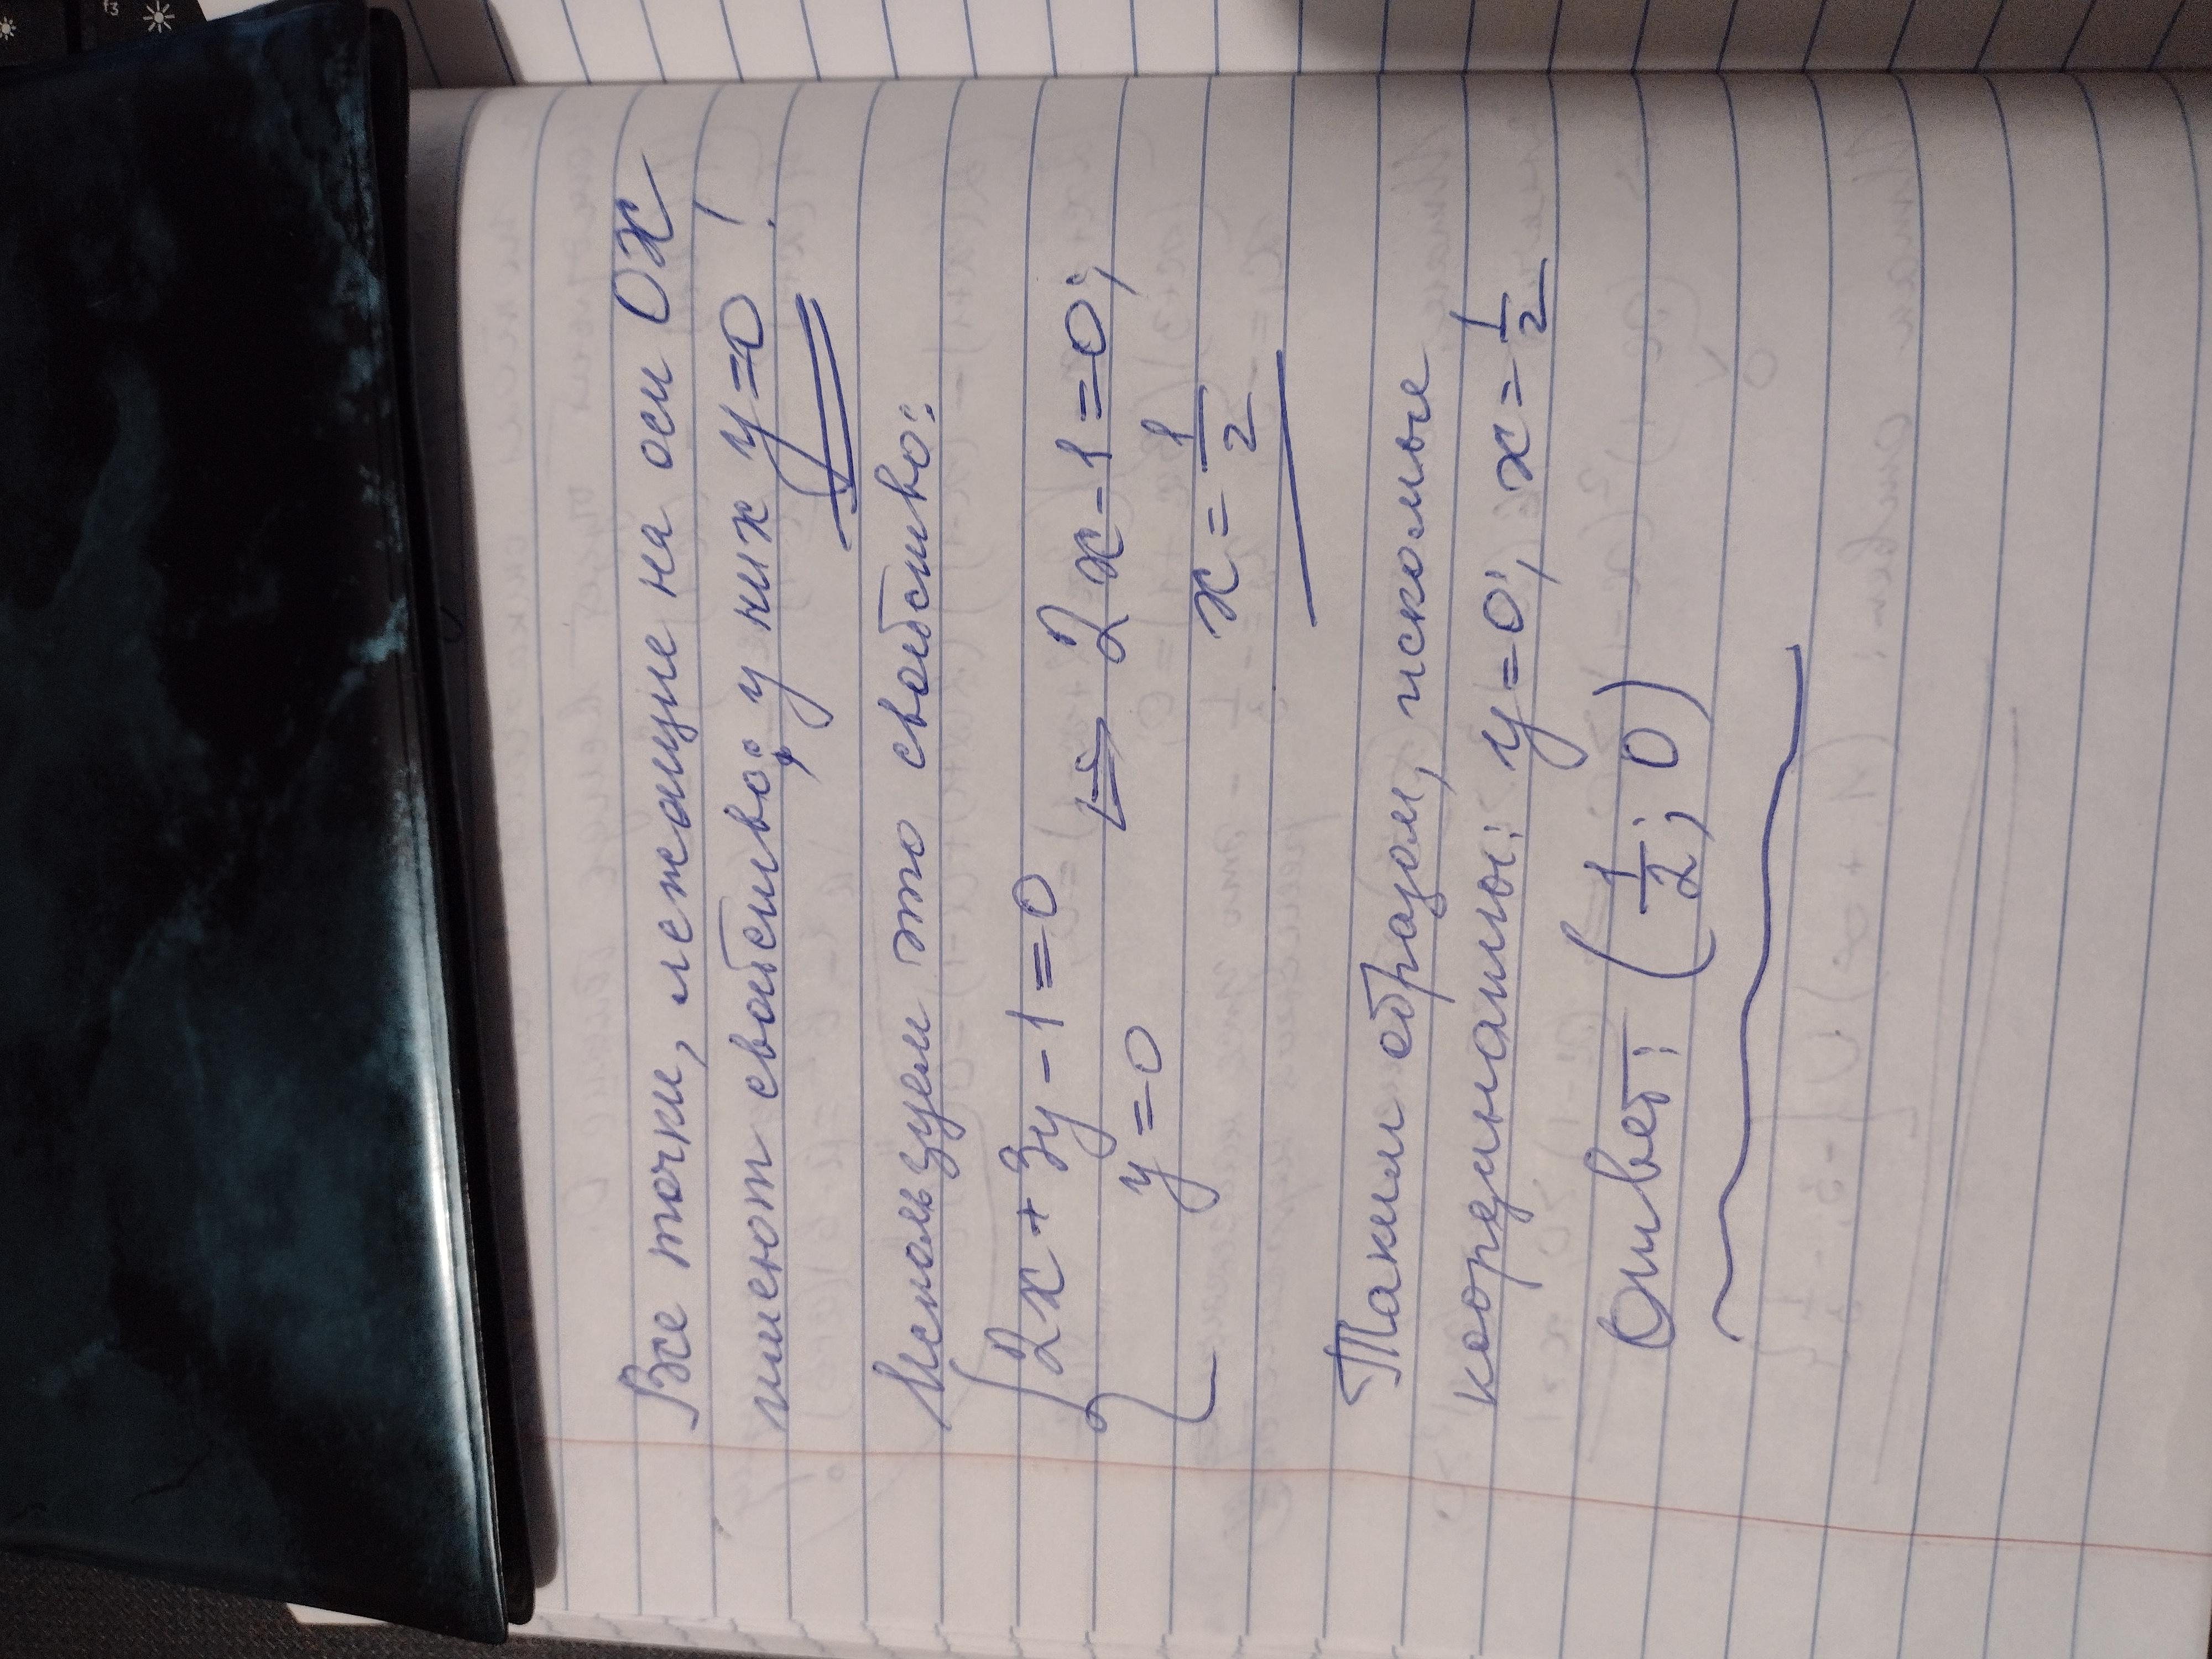 f3
Все точки, лежащие на оси OX
имеют свойство: у них y=0!
Используем это свойство:
{2x+3y-1=0
y=0 => 2x-1=0;
x=1/2
Таким образом, искомые
координаты: y=0; x=1/2
Ответ: (1/2; 0)